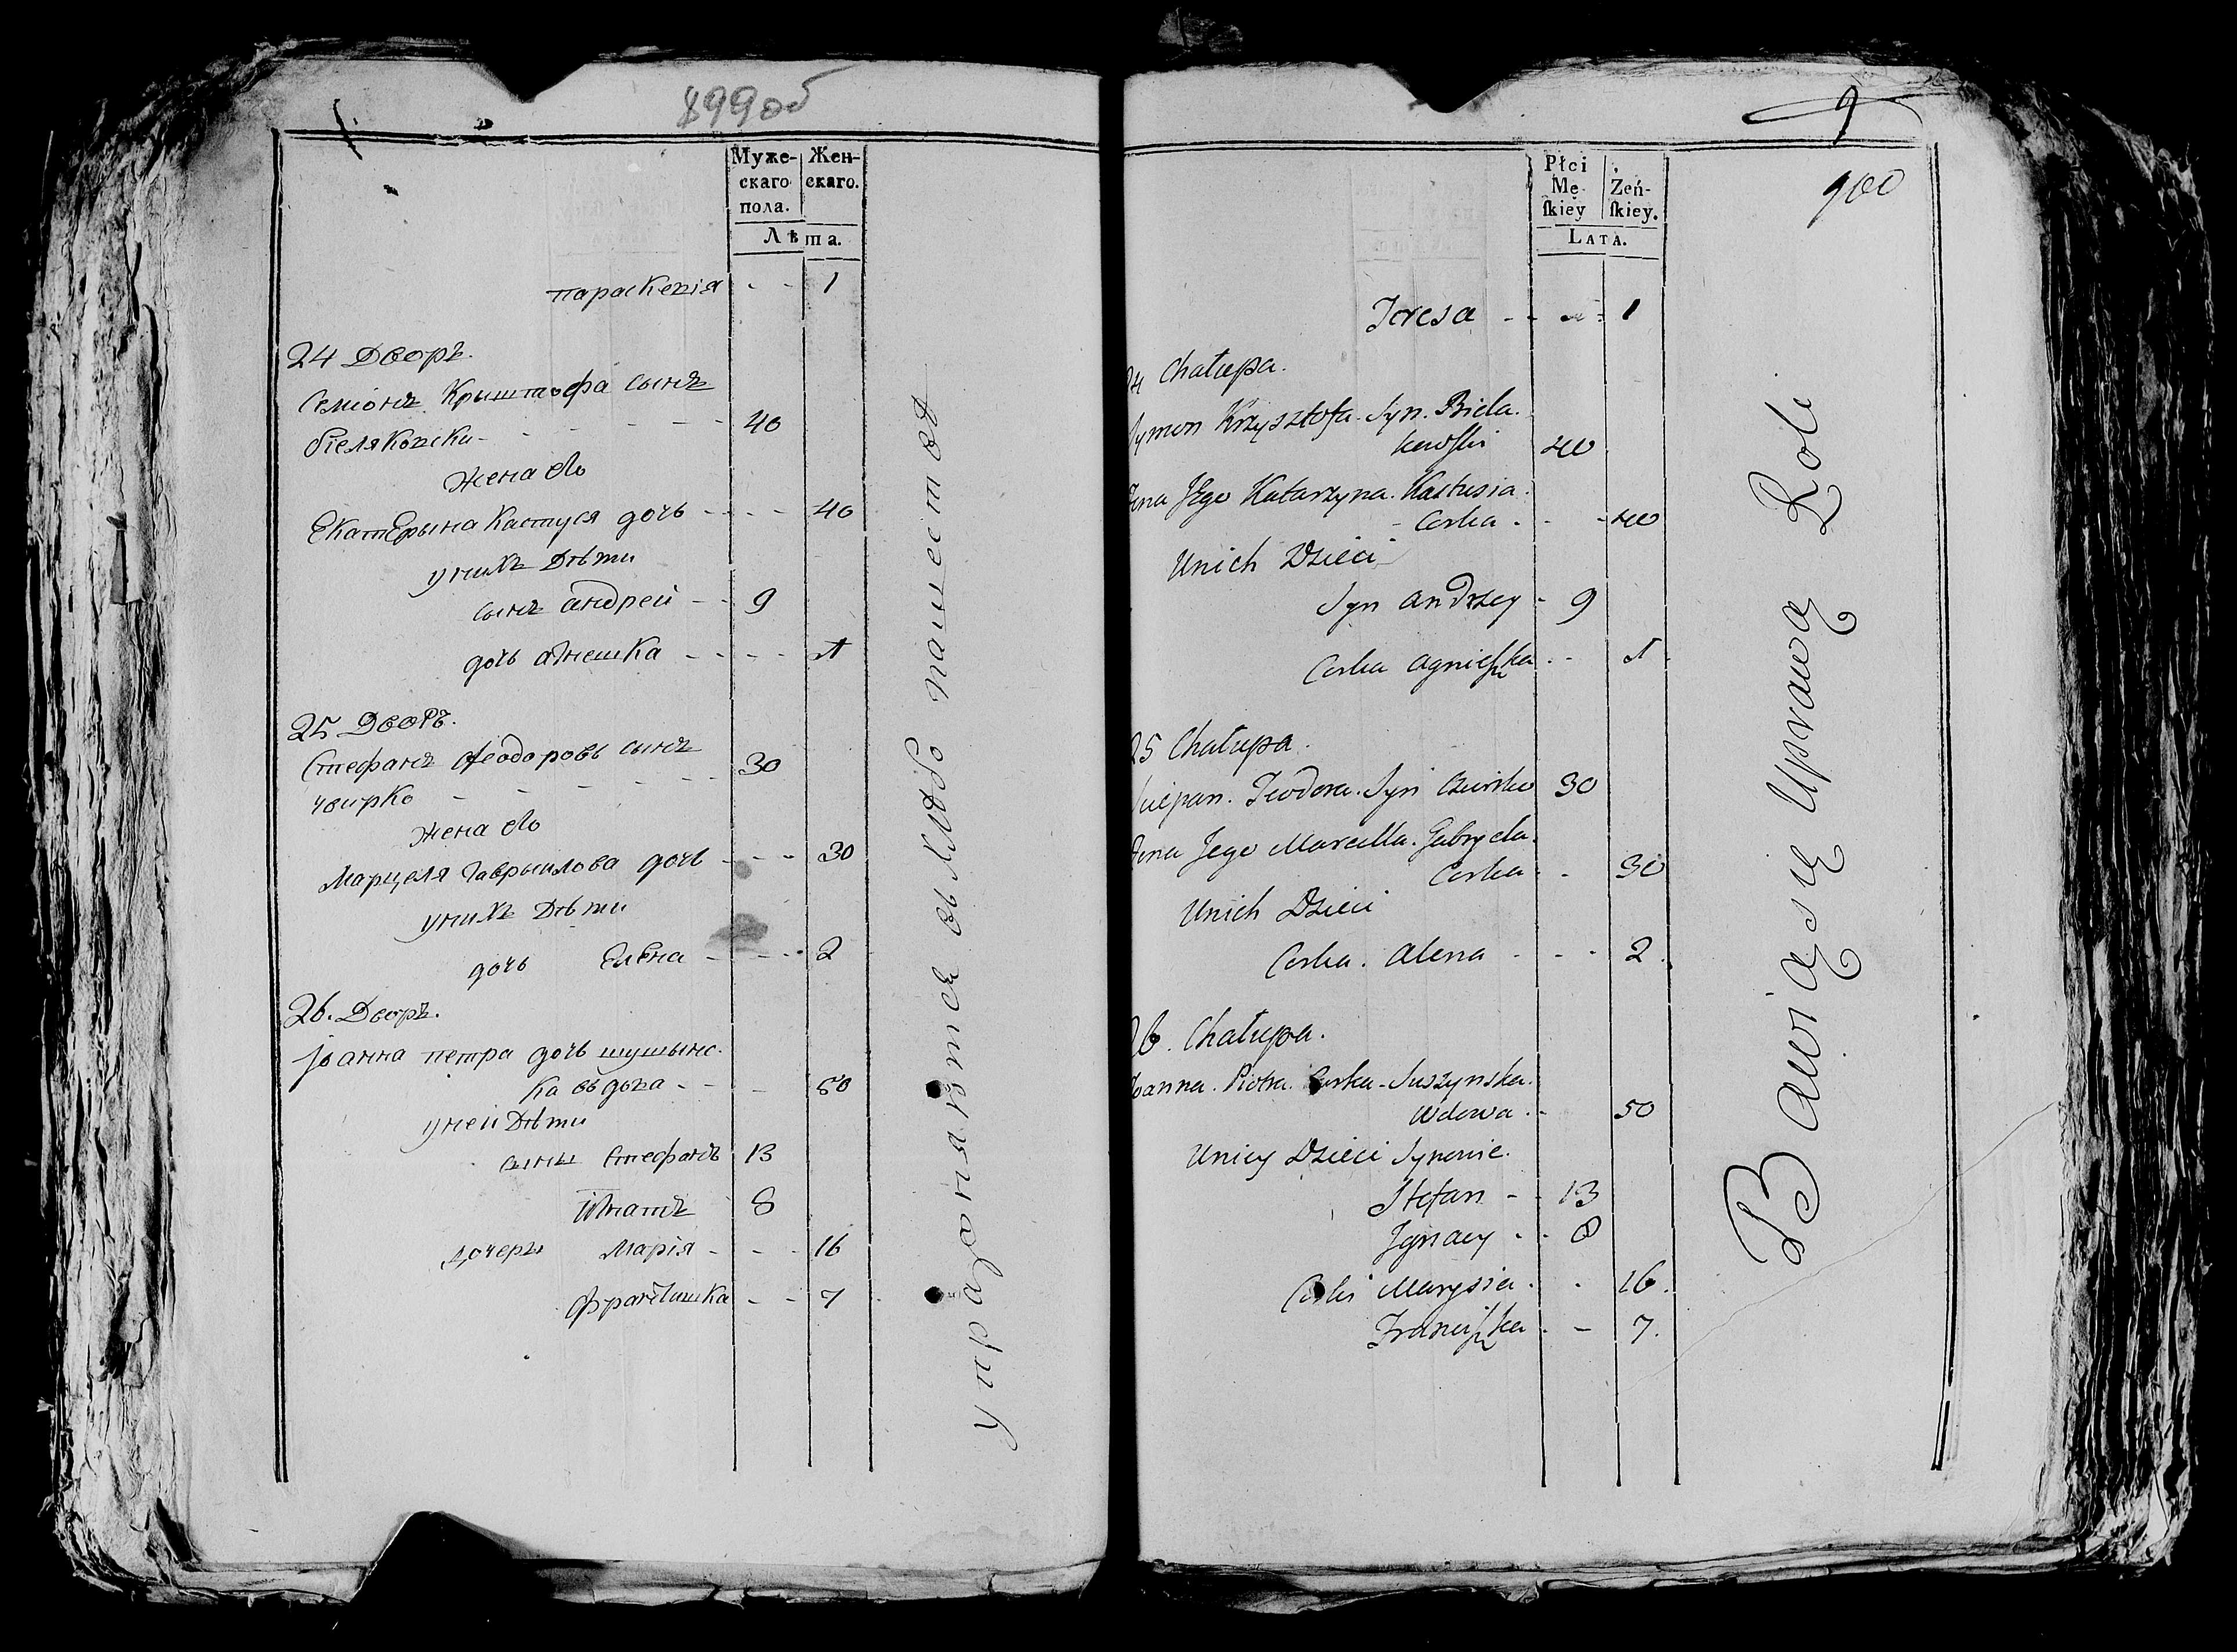 899об
Муже-
скаго
пола.
Жен-
скаго.
Лѣта.
параскевія - - 1
24 Дворъ.
Семіонъ Крыштофа сынъ
біеляковски - - - - - - 40
жена его
Екатерына Кастуся дочь - - - - 40
унихъ Дѣти
сынъ андрей - - 9
дочь агнешка - - - - 1
25 Дворъ.
Стефанъ Феодоровъ сынъ
чвирко - - - - - - 30
жена его
Марцеля Гаврыилова дочь - - - - 30
унихъ Дѣти
дочь Елена - - - - 2
26. Дворъ.
Іоанна петра дочь шушынс.
ка вьдова - - - 50
уней Дѣти
сыны Стефанъ 13
Игнатъ 8
дочеры Марія - - - 16
Францишка - - 7
упражняются въ хлѣбо пашествѣ
9
900
Płci
Mę-
skiey
Zeń-
skiey.
LATA.
Teresa - - - 1
24 Chałupa.
Symon Krzysztofa. Syn. Biela.
kowski 40
Żona Jego Katarzyna. Kastusia.
- Corka. - - 40
Unich Dzieci
Syn andrzey - 9
Corka agnieszka. - 1.
25 Chałupa.
Sciepan. Teodora. Syn Czwirko 30
Żona Jego Marcella. Gabryela.
Corka. - 30
Unich Dzieci
Corka. alena - - - 2.
26. Chałupa.
Joanna. Piotra. Corka - Suszynska.
Wdowa. - 50
Uniey Dzieci Synowie.
Stefan - - 13
Jgnacy - - 8
Corki Marysia. - 16.
Franciszka. - 7.
Bawiąsię Uprawą Roli